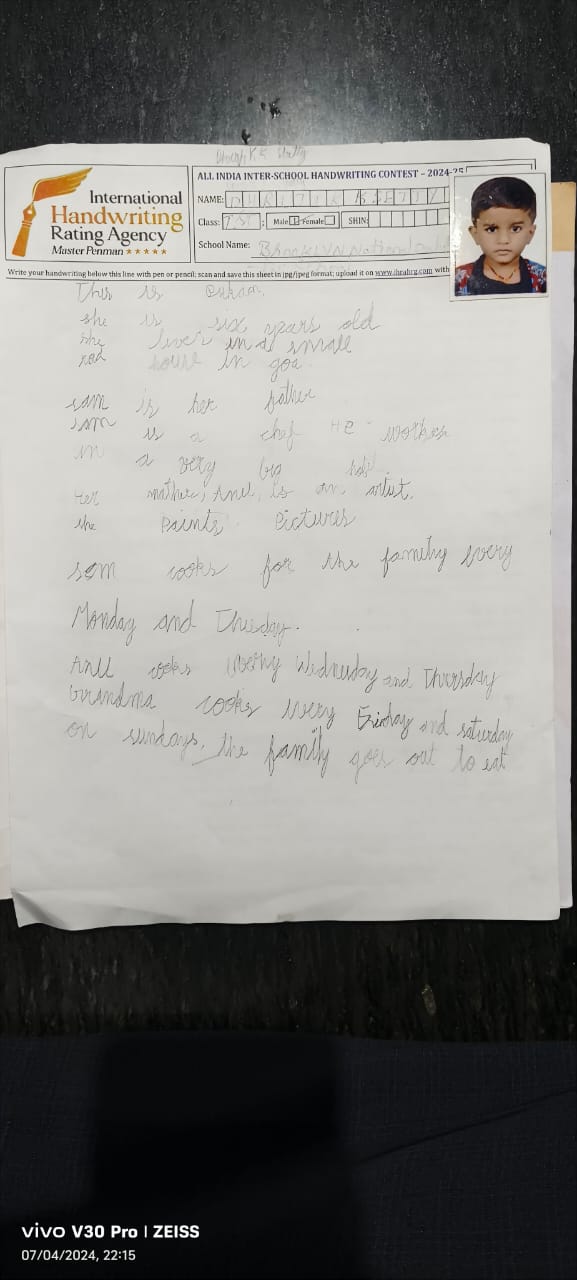 ALL INDIA INTER-SCHOOL HANDWRITING CONTEST – 2024-25
International
Handwriting
Rating Agency
Master Penman ★★★★★
NAME:
Class: 1st ; Male Female SHIN:
School Name:
Write your handwriting below this line with pen or pencil; scan and save this sheet in jpg/jpeg format; upload it on www.ihrahrg.com with
This is
she is six years old
she lives in a small
red house in goa.
sam is her father
sam is a chef HE works
in a very big
her mother, Anu, is an artist.
she paints Pictures
sam cooks for the family every
Monday and
cooks Wednesday and Thursday
Grandma cooks every Friday and saturday
on sundays, the family goes out to eat
vivo V30 Pro | ZEISS
07/04/2024, 22:15